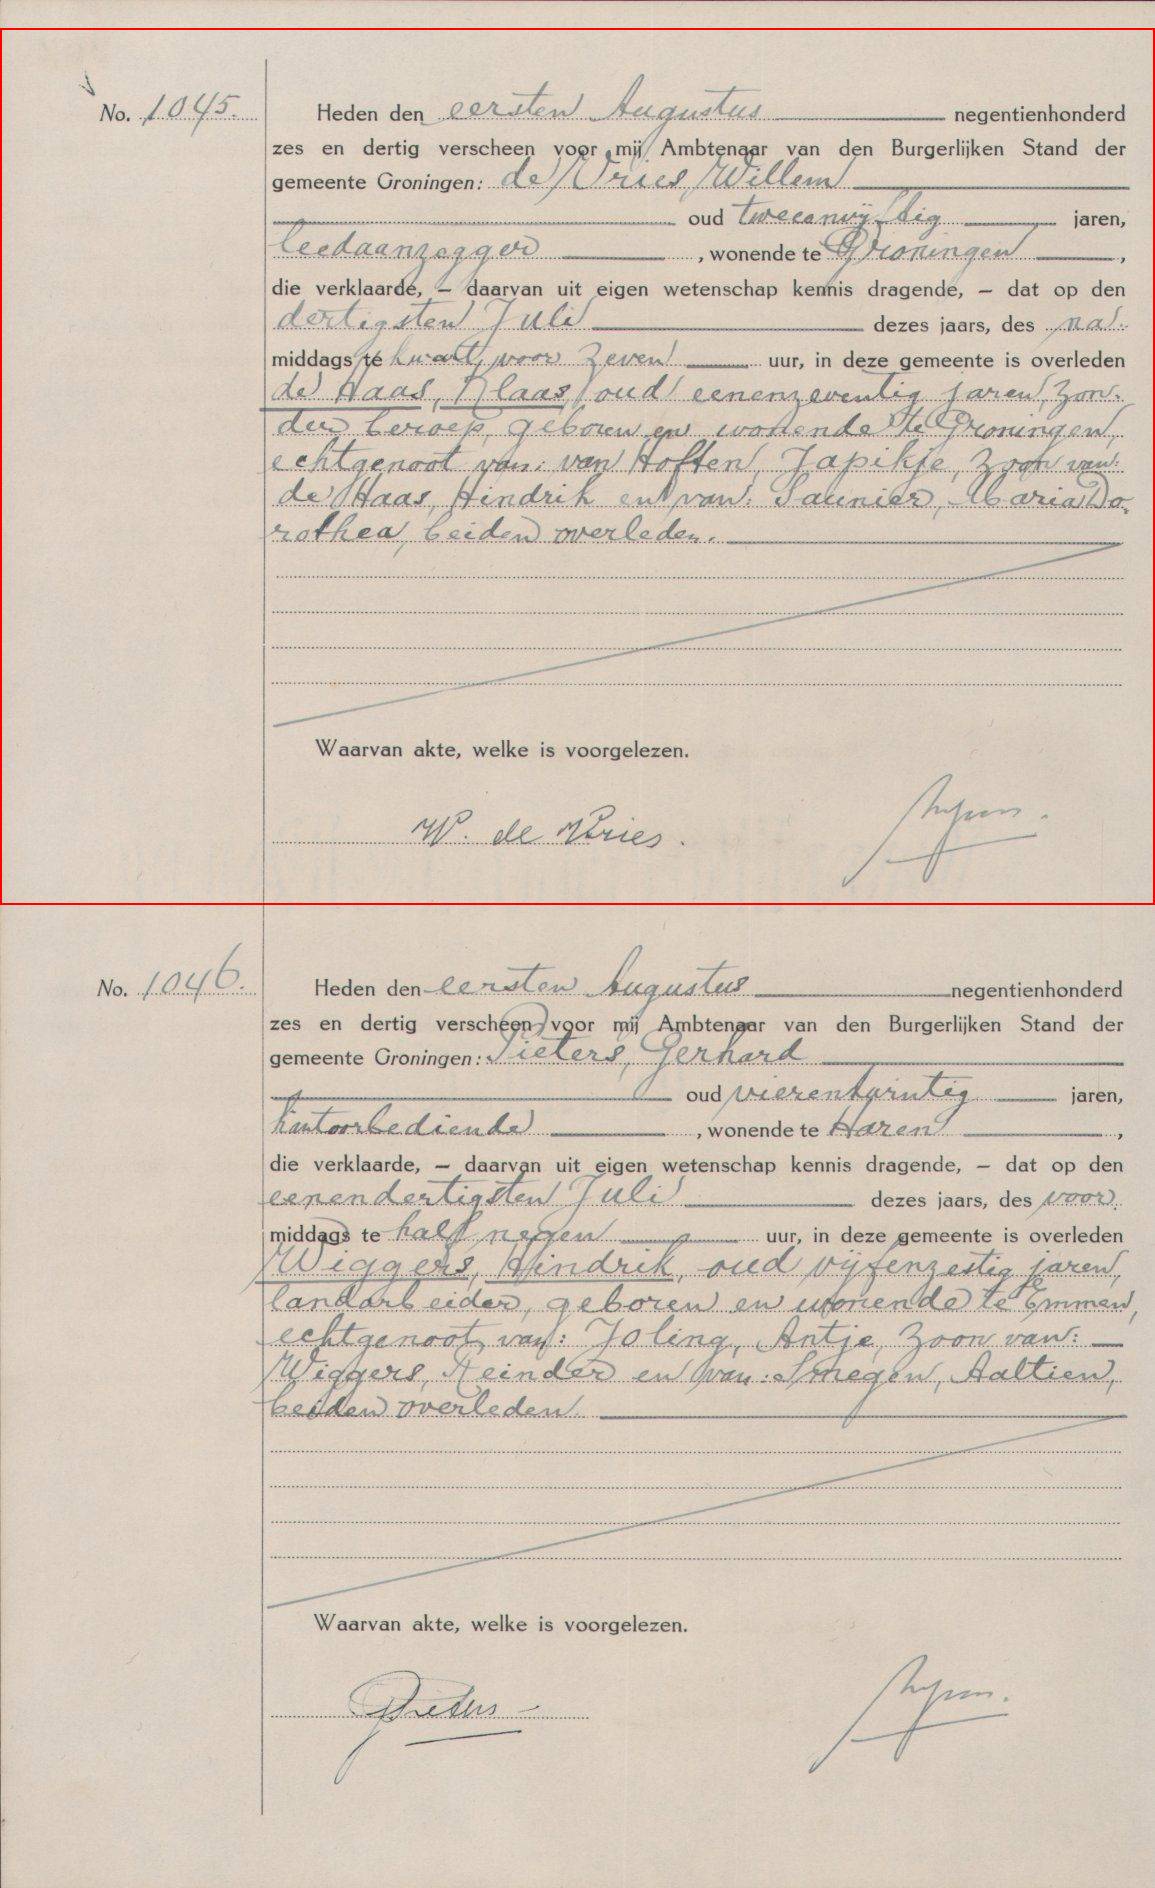 No. 1045.
Heden den eersten Augustus negentienhonderd
zes en dertig verscheen voor mij Ambtenaar van den Burgerlijken Stand der
gemeente Groningen: de Vries, Willem
oud tweeenvijftig jaren,
leedaanzegger , wonende te Groningen ,
die verklaarde, – daarvan uit eigen wetenschap kennis dragende, – dat op den
dertigsten Juli dezes jaars, des na
middags te kwart voor zeven uur, in deze gemeente is overleden
de Haas, Klaas, oud eenenzeventig jaren, zon-
der beroep, geboren en wonende te Groningen,
echtgenoot van: van Hoften, Japikje, zoon van:
de Haas, Hindrik en van: Saunier, Maria Do-
rothea, beiden overleden.
Waarvan akte, welke is voorgelezen.
W. de Vries.
No. 1046.
Heden den eersten Augustus negentienhonderd
zes en dertig verscheen voor mij Ambtenaar van den Burgerlijken Stand der
gemeente Groningen: Pieters, Gerhard
oud vierentwintig jaren,
kantoorbediende , wonende te Haren ,
die verklaarde, – daarvan uit eigen wetenschap kennis dragende, – dat op den
eenendertigsten Juli dezes jaars, des voor
middags te half negen uur, in deze gemeente is overleden
Wiggers, Hindrik, oud vijfenzestig jaren,
landarbeider, geboren en wonende te Emmen,
echtgenoot van: Joling, Antje, zoon van:
Wiggers, Reinder en van: Smegen, Aaltien,
beiden overleden.
Waarvan akte, welke is voorgelezen.
GPieters